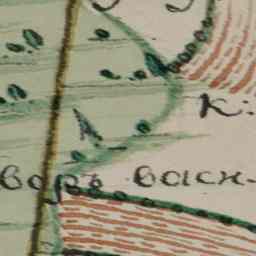 к:
воръ васи-